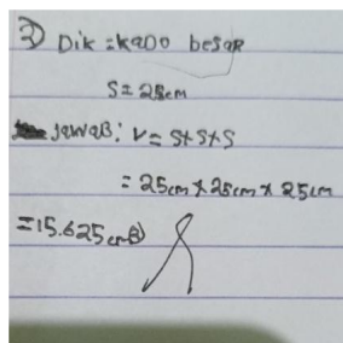 3) Dik = kADO besAR
S = 25cm
JAWAB: V = S x S x S
= 25cm x 25cm x 25cm
= 15.625 cm3)